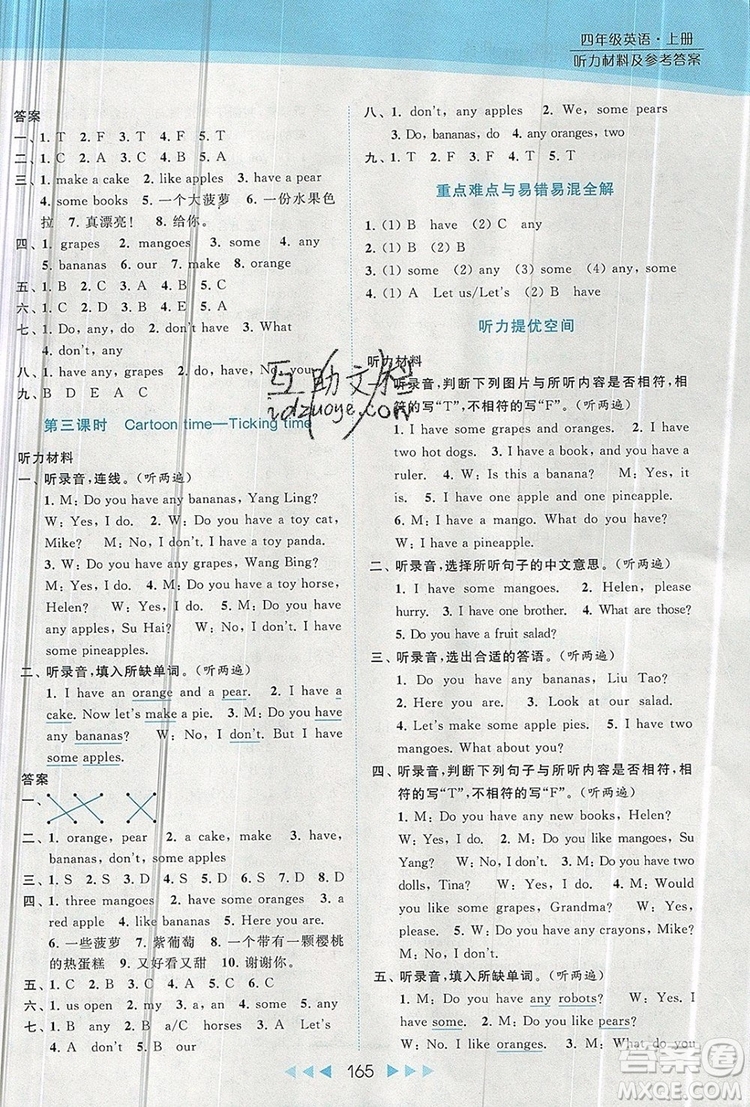 四年级英语·上册
听力材料及参考答案
答案
一、1. T 2. F 3. T 4. F 5. T
二、1. C 2. A 3. A 4. B 5. A
三、1. make a cake 2. like apples 3. have a pear
4. some books 5. 一个大菠萝 6. 一份水果色
拉 7. 真漂亮！ 8. 给你。
四、1. grapes 2. mangoes 3. some 4. any
5. bananas 6. our 7. make 8. orange
五、1. B 2. C 3. A 4. B 5. C
六、1. C 2. D 3. B 4. E 5. A
七、1. Do, any, do 2. have 3. What
4. don't, any
八、1. have, any, grapes, do, have, No, you
九、B D E A C
第三课时 Cartoon time—Ticking time
听力材料
一、听录音,连线。(听两遍)
1. M: Do you have any bananas, Yang Ling?
W: Yes, I do. 2. W: Do you have a toy cat,
Mike? M: No. I have a toy panda.
3. W: Do you have any grapes, Wang Bing?
M: Yes, I do. 4. M: Do you have a toy horse,
Helen? W: Yes, I do. 5. M: Do you have
any apples, Su Hai? W: No, I don't. I have
some pineapples.
二、听录音,填入所缺单词。(听两遍)
1. I have an orange and a pear. 2. I have a
cake. Now let's make a pie. 3. M: Do you have
any bananas? W: No, I don't. But I have
some apples.
答案
一、
二、1. orange, pear 2. a cake, make 3. have,
bananas, don't, some apples
三、1. S 2. S 3. D 4. D 5. S 6. S 7. S 8. D
四、1. three mangoes 2. have a cherry 3. a
red apple 4. like bananas 5. Here you are.
6. 一些菠萝 7. 紫葡萄 8. 一个带有一颗樱桃
的热蛋糕 9. 又好看又甜 10. 谢谢你。
五、1. C 2. A 3. B 4. B 5. C
六、1. us open 2. my 3. an, a 4. don't, some
七、1. B any 2. B a/C horses 3. A Let's
4. A don't 5. B our
八、1. don't, any apples 2. have, some pears
3. Do, bananas, do 4. any oranges, two
九、1. F 2. F 3. F 4. T 5. T
重点难点与易错易混全解
1. (1) B have (2) C any
2. (1) B (2) B
3. (1) some (2) any (3) some (4) some
4. (1) A Let us/Let's (2) B have
听力提优空间
听力材料
听录音,判断下列图片与所听内容是否相符,相
符的写“T”,不相符的写“F”。(听两遍)
1. I have some grapes. 2. I have one pie and
two hot dogs. 3. I have a book and you have a
ruler. 4. W: Is this a banana? M: Yes, it
is. 5. I have one apple and one pineapple.
6. M: I have a mango. What do you have?
W: I have a pineapple.
二、听录音,选择所听句子的中文意思。(听两遍)
1. I have some mangoes. 2. Helen, please
hurry. 3. I have one brother. 4. What are those?
5. Do you have a fruit salad?
三、听录音,选出合适的答语。(听两遍)
1. Do you have any bananas, Liu Tao?
2. Here you are. 3. Look at our salad.
4. Let's make some apple pies. 5. I have two
mangoes. What about you?
四、听录音,判断下列句子与所听内容是否相符,相
符的写“T”,不相符的写“F”。(听两遍)
1. M: Do you have any new books, Helen?
W: Yes, I do. 2. M: Do you like mangoes, Su
Yang? W: No, I don't. 3. M: Do you have two
dolls, Tina? W: Yes, I do. 4. M: Do you
have some grapes, Grandma? W: Yes,
please. 5. W: Do you have any crayons, Mike?
M: No, I don't.
五、听录音,填入所缺单词。(听两遍)
1. M: Do you have any robots? W: Yes, I
have some. 2. M: Do you have any grapes?
W: Yes, I have some. 3. M: What do you
165
互助文库
idzuoye.com
答案圈
MXQE.COM